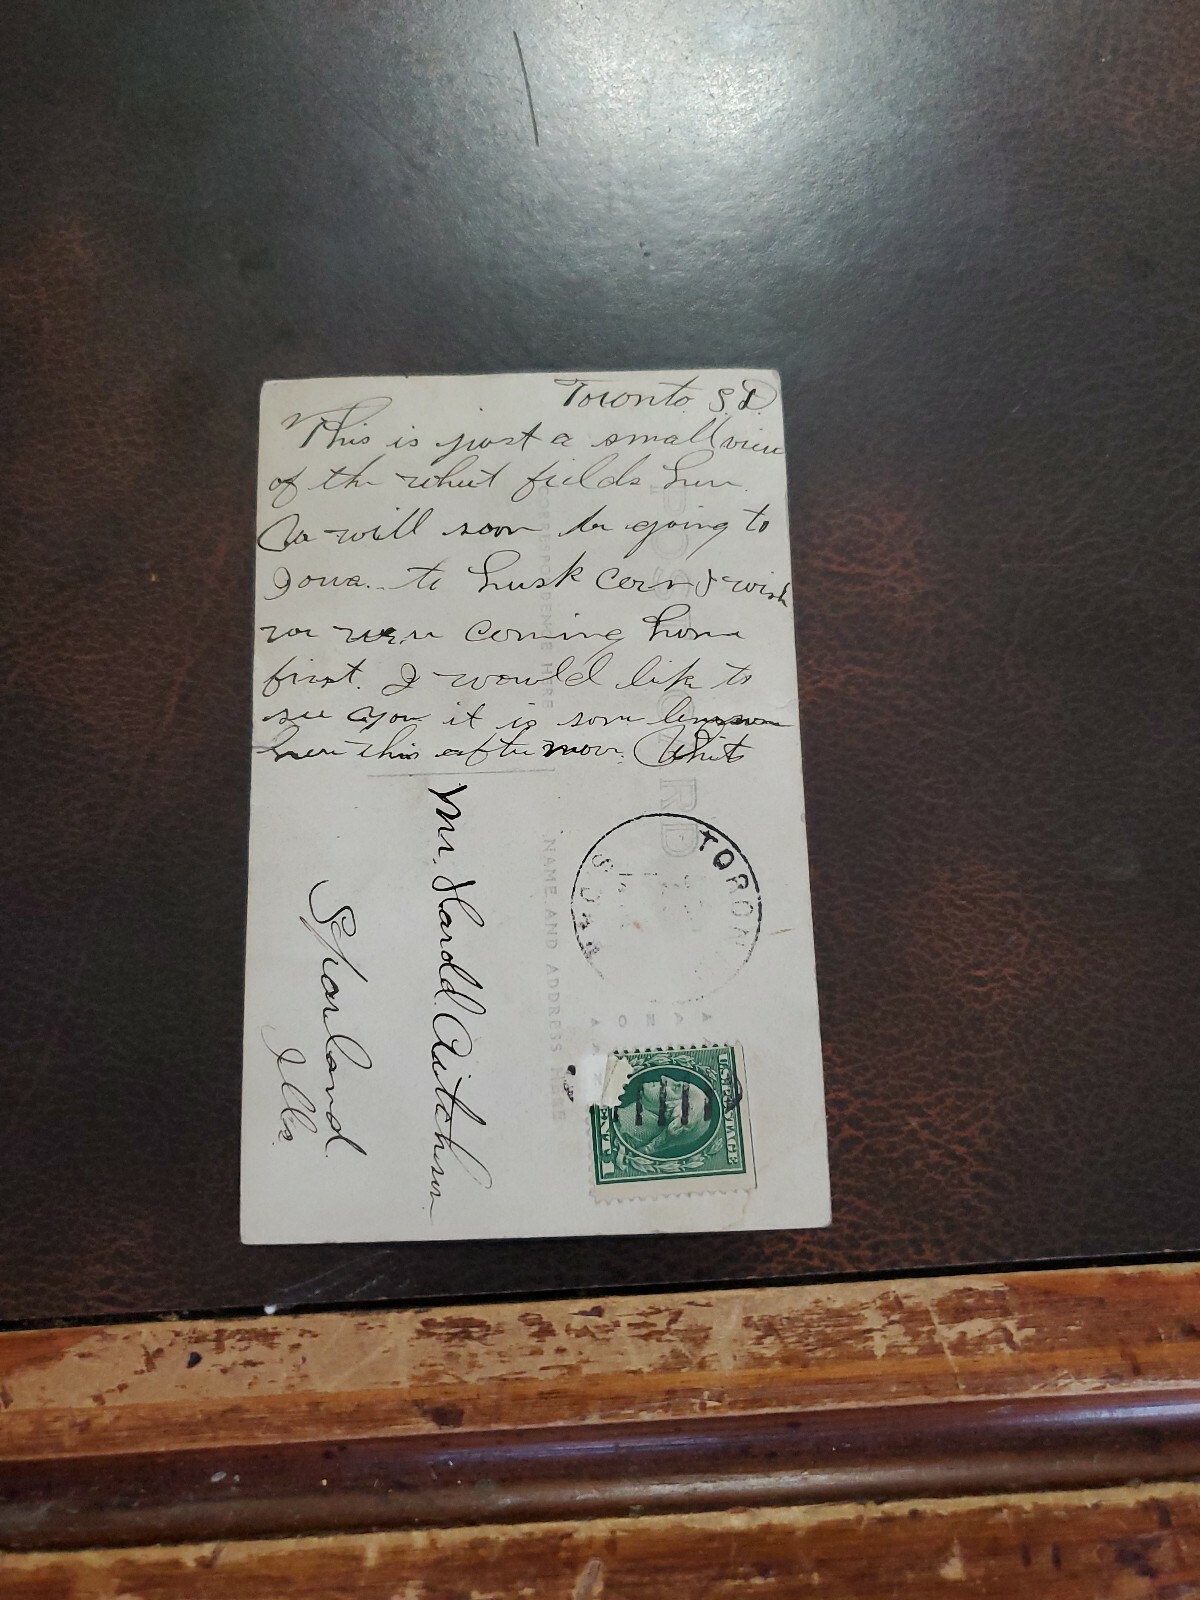 Toronto S.D.
This is just a small view
of the wheat fields here.
We will soon be going to
Iowa.. to husk corn I wish
we were coming home
first. I would like to
see you it is some
here this afternoon. White
POST CARD
CORRESPONDENCE HERE
NAME AND ADDRESS HERE
TORON
S DAK
Mr. Harold. Aitchison.
Sparland.
Ills.
U.S. POSTAGE
CENT 1